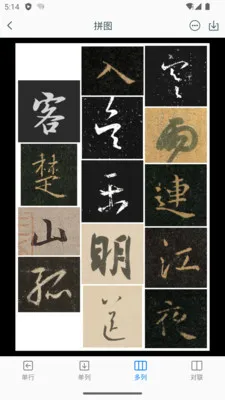 5:14
拼图
寒雨連江夜
入吴平明送
客楚山孤
单行
单列
多列
对联